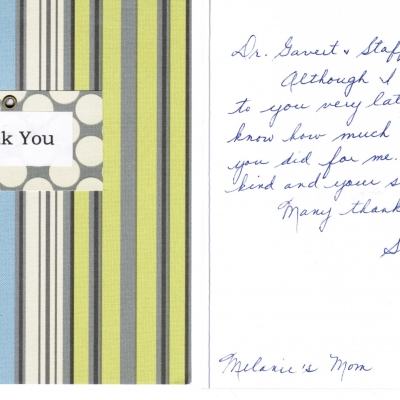 k You
Dr. Gavest & Staff
Although I
to you very lat
know how much
you did for me.
kind and your s
Many thank
S
Melanie's Mom